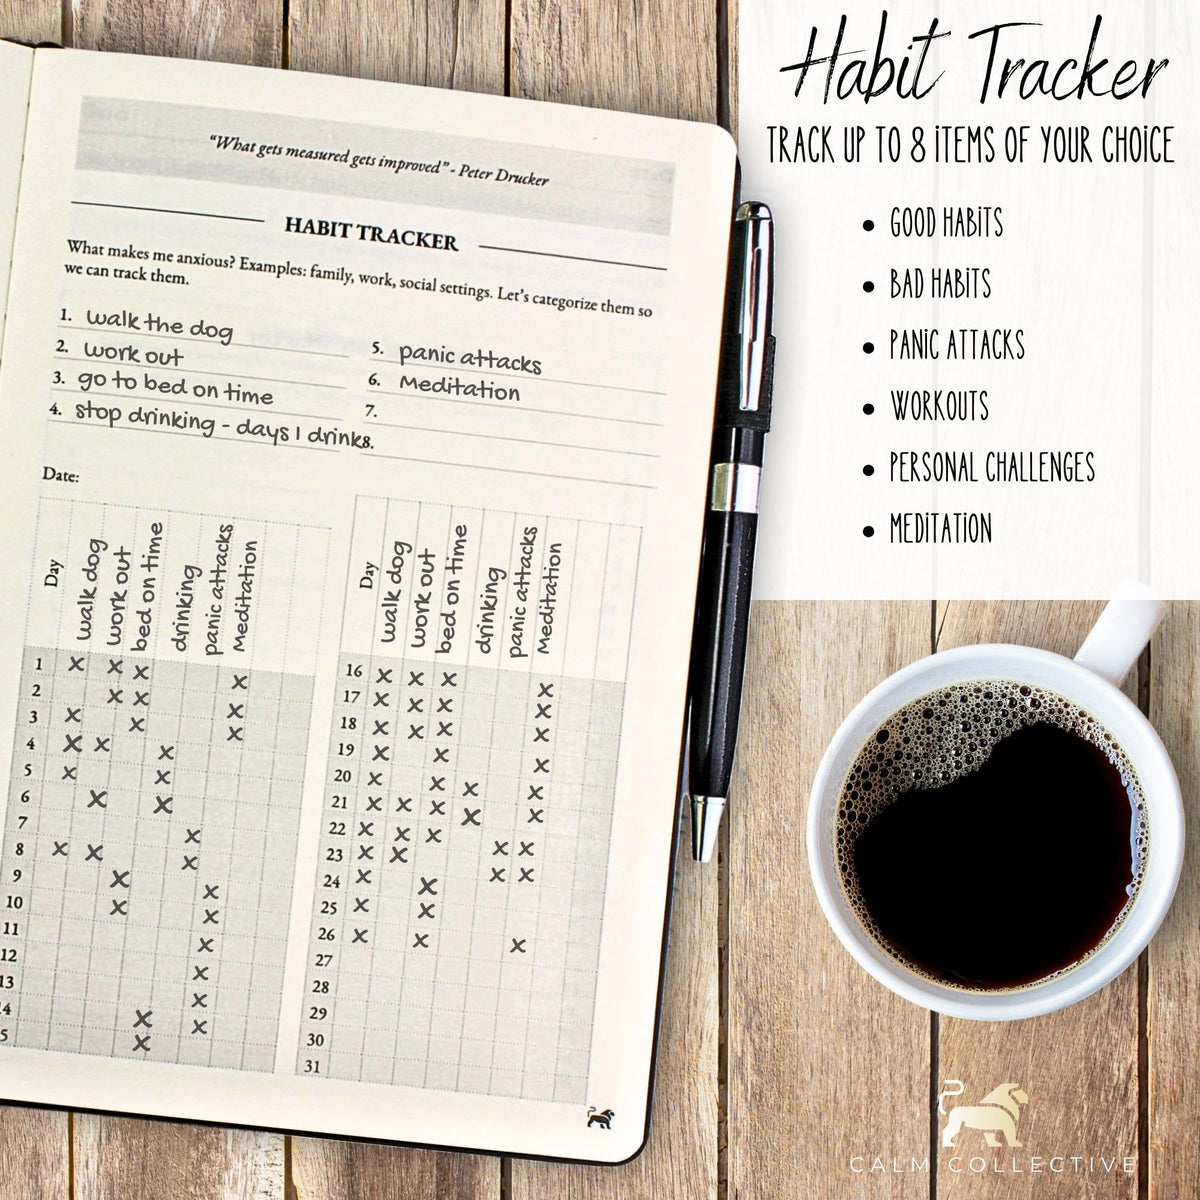 “What gets measured gets improved” - Peter Drucker
HABIT TRACKER
What makes me anxious? Examples: family, work, social settings. Let’s categorize them so
we can track them.
1. walk the dog
2. work out
3. go to bed on time
4. stop drinking - days I drink
5. panic attacks
6. Meditation
7.
8.
Date:
Day walk dog work out bed on time drinking panic attacks Meditation
1 x x x x
2 x x x
3 x x x
4 x x x
5 x x
6 x x
7 x
8 x x x
9 x x
10 x x
11 x
12 x
13 x
14 x x
5 x
Day walk dog work out bed on time drinking panic attacks Meditation
16 x x x x
17 x x x x
18 x x x x
19 x x x
20 x x x x
21 x x x x x
22 x x x x x
23 x x x x
24 x x
25 x x
26 x x x
27
28
29
30
31
Habit Tracker
TRACK UP TO 8 ITEMS OF YOUR CHOICE
• GOOD HABITS
• BAD HABITS
• PANIC ATTACKS
• WORKOUTS
• PERSONAL CHALLENGES
• MEDITATION
CALM COLLECTIVE